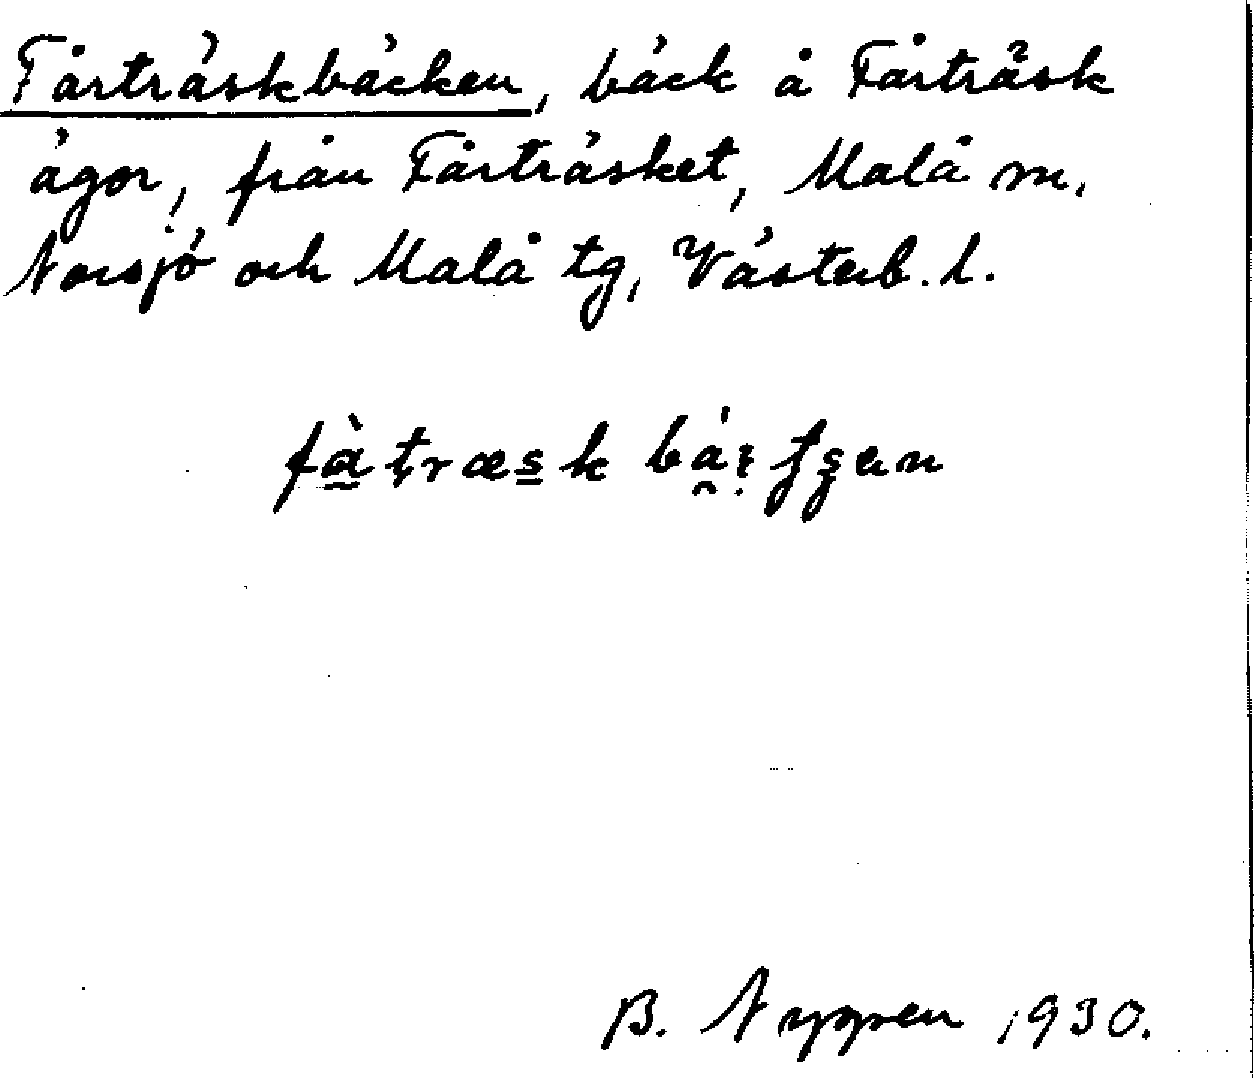 Fårträskbäcken, bäck å Fårträsk
ägor, från Fårträsket, Malå sn.
Norsjö och Malå tg, Västerb. l.
B. Nygren 1930.